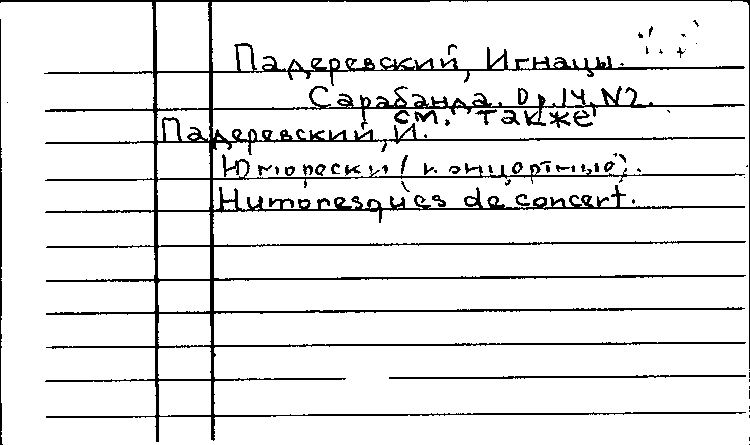 Падеревский, Игнацы.
Сарабанда. Op.14, N2.
см. также
Падеревский, И.
Юморески (концертные).
Humoresques de concert.